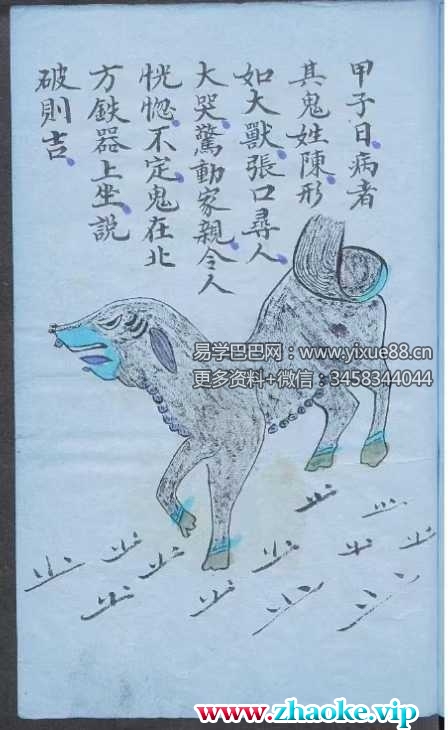 甲子日病者
其鬼姓陳形
如大獸張口尋人
大哭驚動家親令人
恍惚不定鬼在北
方鉄器上坐説
破則吉
易学巴巴网：www.yixue88.cn
更多资料+微信：3458344044
www.zhaoke.vip